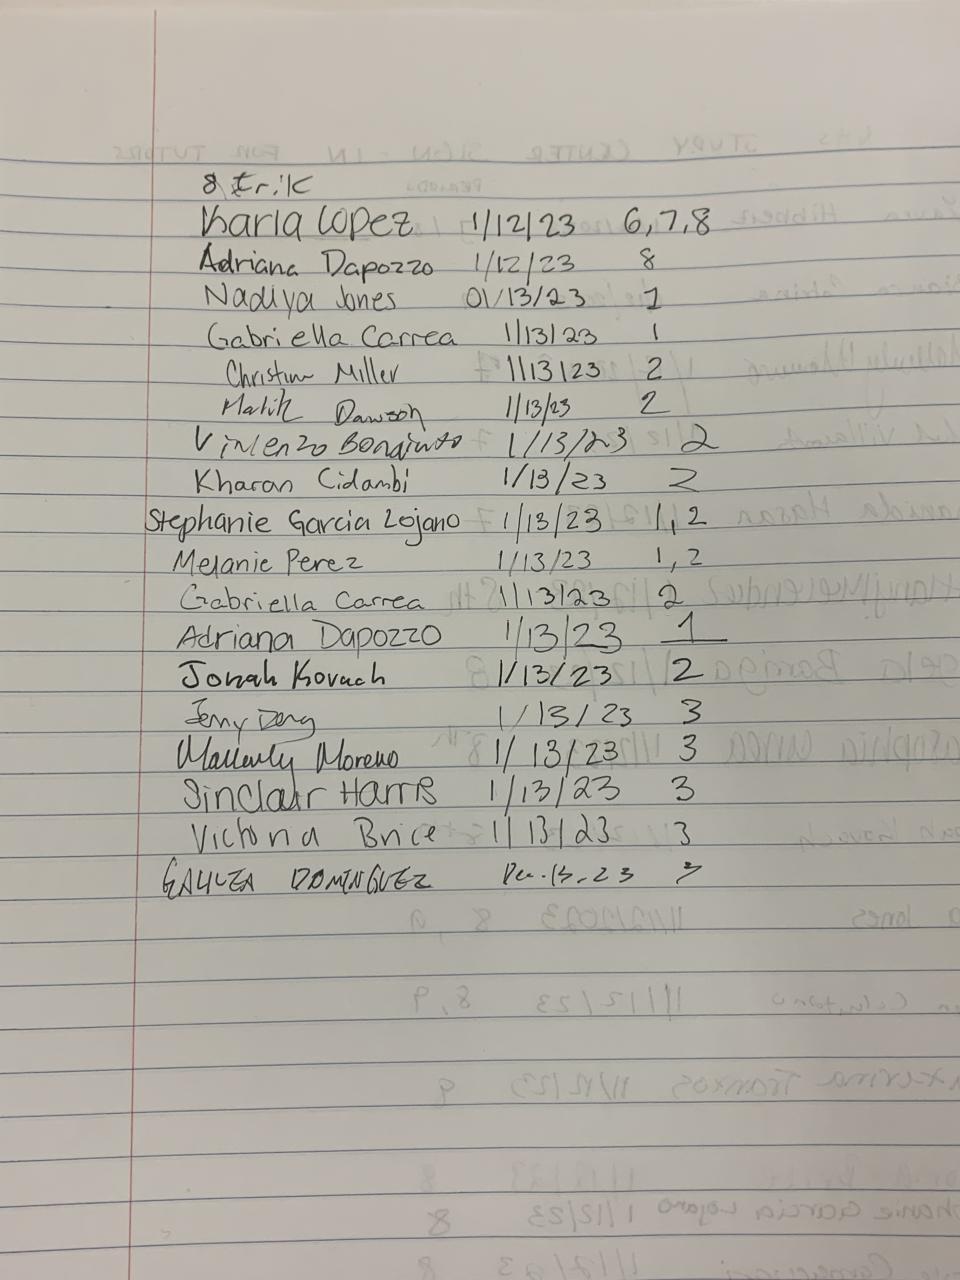 8 Erik
Karla Lopez 1/12/23 6,7,8
Adriana Dapozzo 1/12/23 8
Nadiya Jones 01/13/23 1
Gabriella Carrea 1/13/23 1
Christine Miller 1/13/23 2
Malik Dawson 1/13/23 2
Vincenzo 1/13/23 2
Kharan Cidambi 1/13/23 2
Stephanie Garcia Lojano 1/13/23 1,2
Melanie Perez 1/13/23 1,2
Gabriella Carrea 1/13/23 2
Adriana Dapozzo 1/13/23 1
Jonah Kovach 1/13/23 2
Jenny 1/13/23 3
Moreno 1/13/23 3
Sinclair Harris 1/13/23 3
Victoria Brice 1/13/23 3
GALILEA DOMINGUEZ 13.23 3